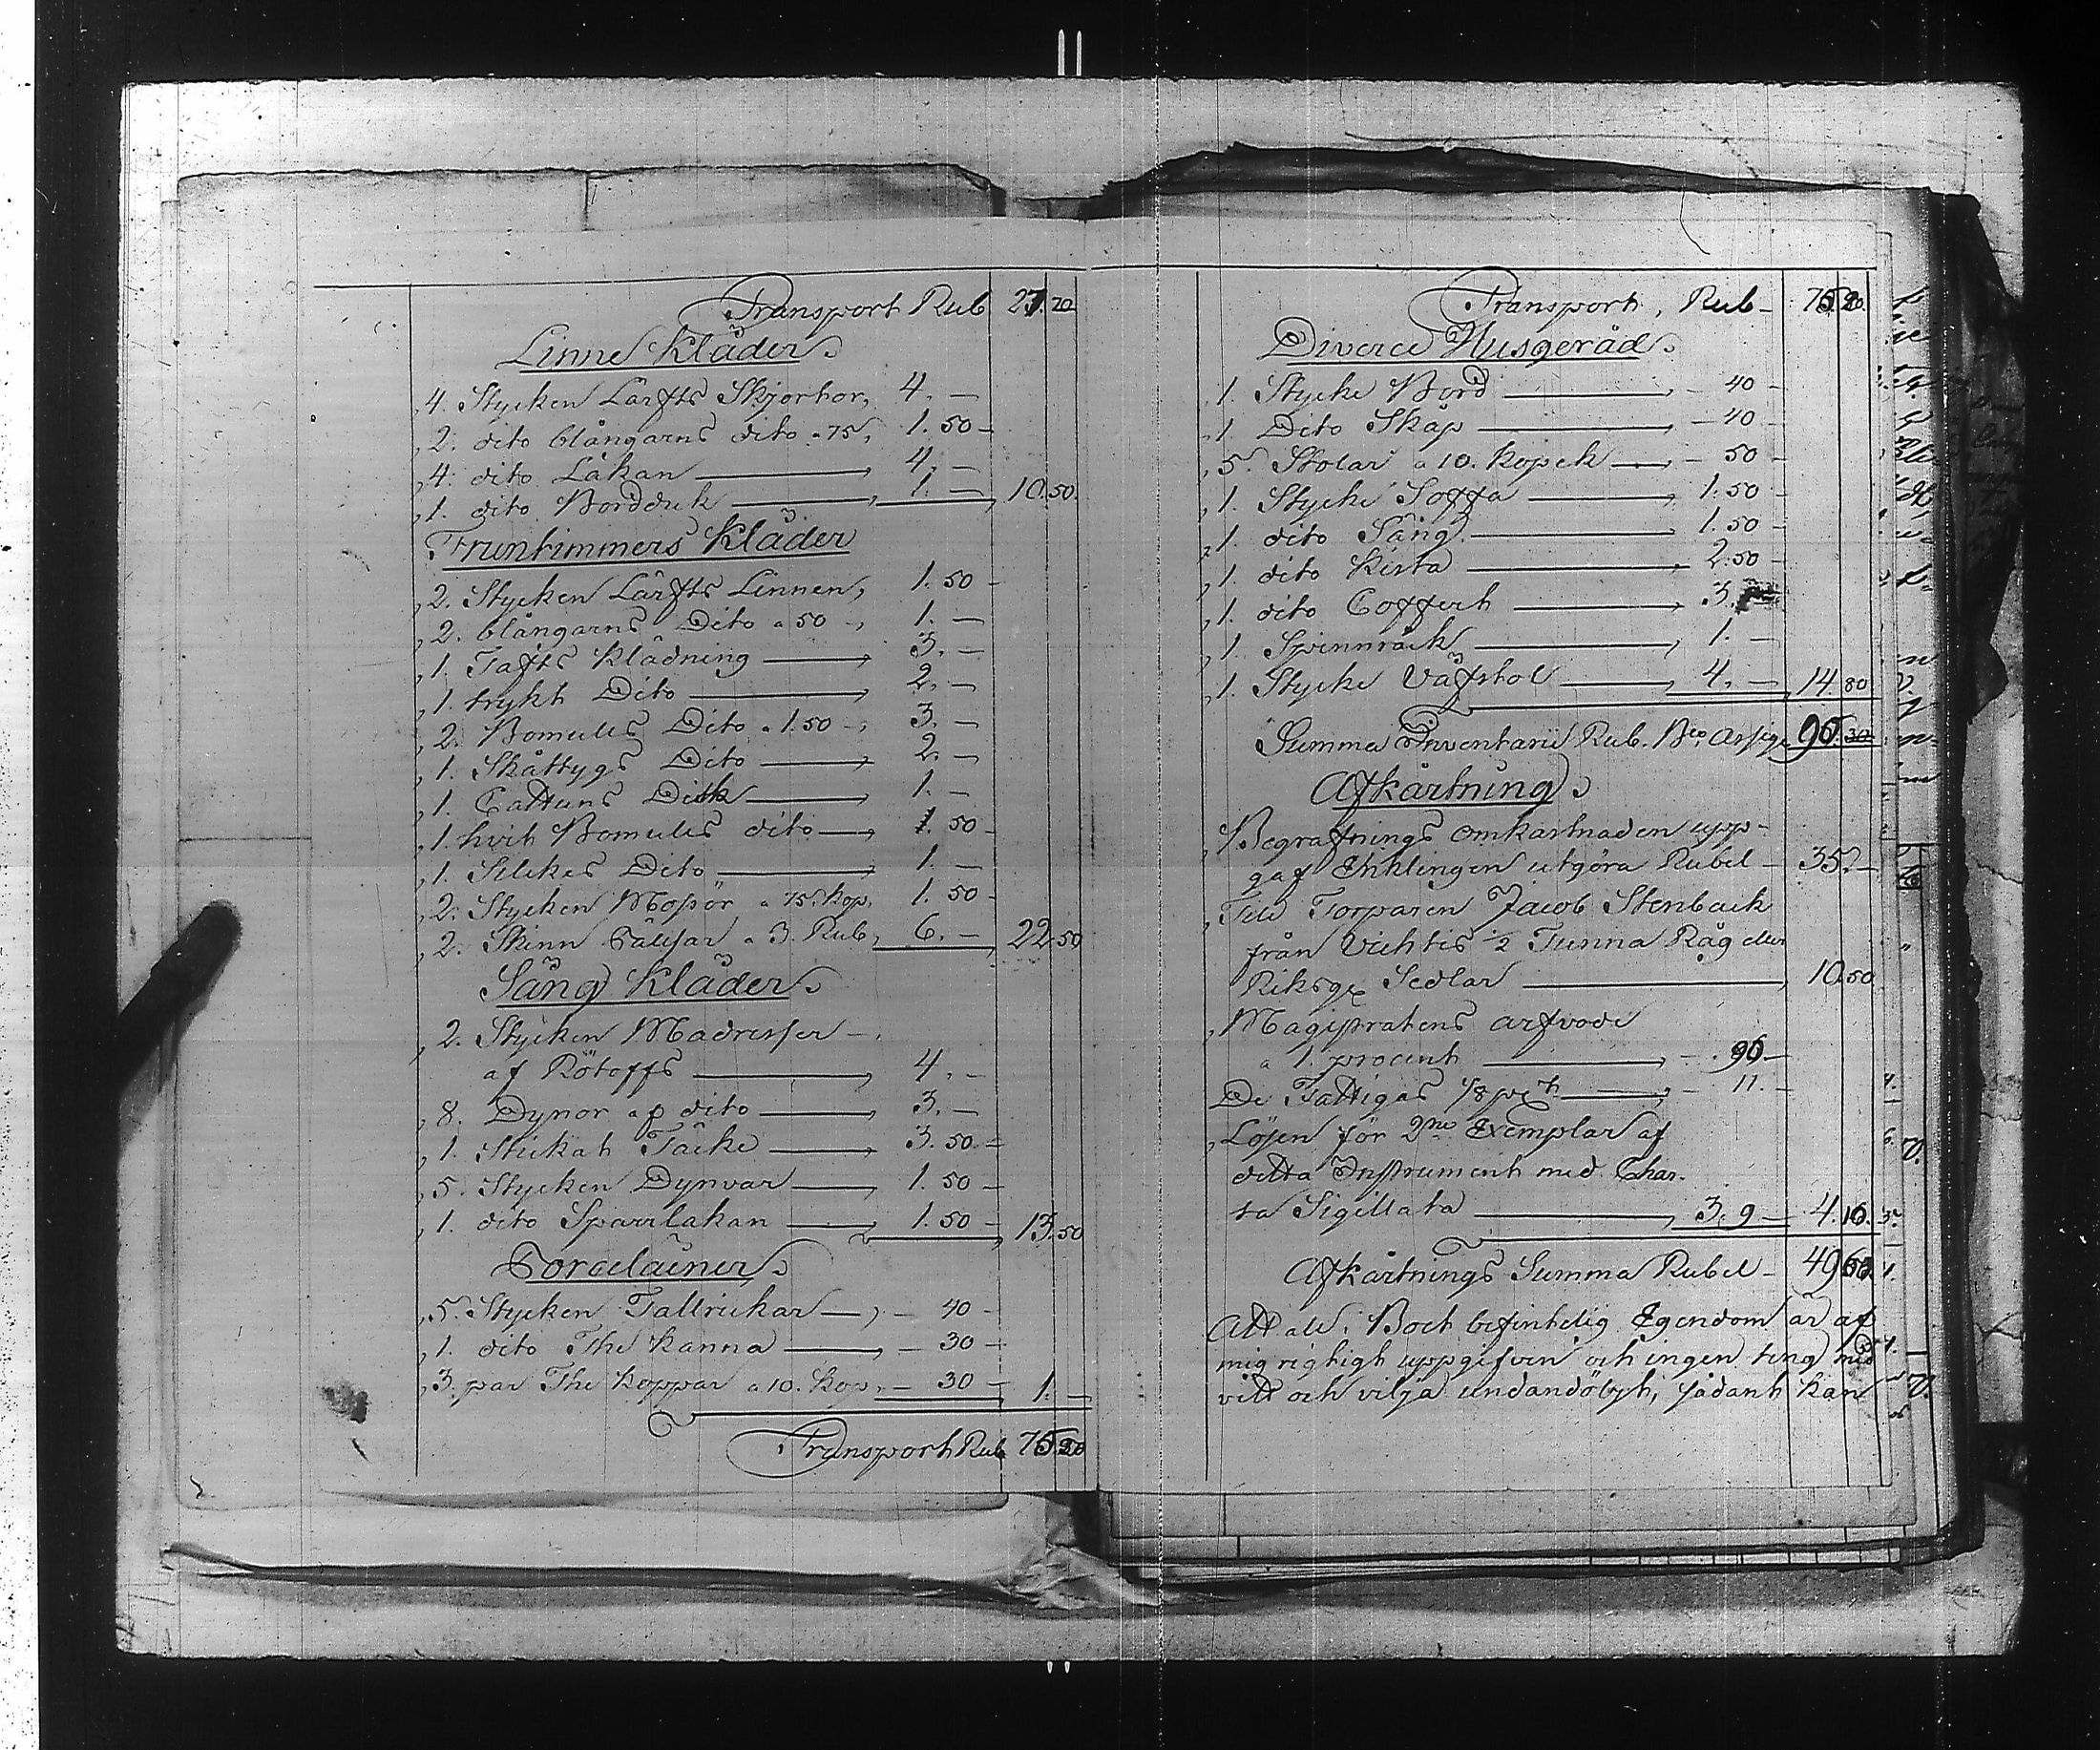 Transport Rub 27.70
Linne Kläder.
4. Stycken Lärfts Skjortor, 4. —
2. dito blångarns dito a 75, 1. 50 —
4. dito Lakan — 4. —
1. dito Bordduk — 1. — 10.50.
Fruntimmers Kläder
2. Stycken Lärfts Linnen, 1. 50 —
2. blångarns Dito a 50 —, 1. —
1. Tafts Klädning — 3. —
1. trykt Dito — 2. —
2. Bomulls Dito a 1.50 —, 3. —
1. Skåttygs Dito — 2. —
1. Cattuns Dito — 1. —
1. hvit Bomulls dito — 1. 50 —
1. Silkes Dito — 1. —
2. Stycken Mössor a 75. Kop. 1. 50 —
2. Skinn Pälsar a 3. Rub, 6. — 22.50
Säng Kläder.
2. Stycken Madrasser —
af Rötoffs — 4. —
8. Dynor af dito — 3. —
1. Stickat Täcke — 3. 50. —
5. Stycken Dynvar — 1. 50 —
1. dito Sparrlakan — 1. 50 — 13.50
Porcelainer.
5. Stycken Tallrickar — 40 —
1. dito The Kanna — 30 —
3. par The Koppar a 10. Kop. — 30 — 1. —
Transport Rub 75.20
Transport, Rub — 75.20.
Diverce Husgeråd.
1. Stycke Bord — 40 —
1. Dito Skåp — 40 —
5. Stolar a 10. Kopek — 50 —
1. Stycke Soffa — 1. 50 —
1. dito Säng — 1. 50 —
1. dito Kista — 2. 50 —
1. dito Coffert — 3.
1. Spinnråck — 1. —
1. Stycke Väfstol — 4. — 14.80
Summa Inventarii Rub. Bco Assign 90.30
Afkårtning.
Begrafnings omkastnaden upp-
gaf Enklingen utgöra Rubel — 35. —
Till Torparen Jacob Stenback
från Vichtis ½ Tunna Råg eller
Riksgs Sedlar — 10.50
Magistratens arfvode
a 1. procent — 90 —
De Fattigas 1/8 pct — 11. —
Lösen för 2ne Exemplar af
detta Instrument med Char.
ta Sigillata — 3. 9 — 4.10.
Afkårtnings Summa Rubel — 49.60
Att all i Boet befintelig Egendom är af
mig rigtigt uppgifven och ingen ting med
vett och vilja undandölgt, sådant kan